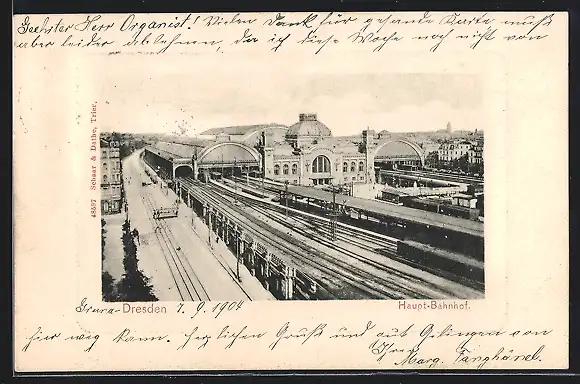 Geehrter Herr Organist! Vielen Dank für gesande Karte muß
aber leider ablehnen, da ich diese Woche noch nicht von
48597 Schaar & Dathe, Trier.
Dresden 7. 9. 1904 Haupt-Bahnhof.
hier weg kann. Herzlichen Gruß und auf Gelingen von
Ihrer
Marg. Tanghänel.